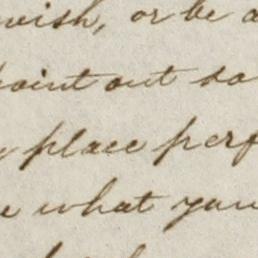 wish, or be a
point out so
place perf
e what your